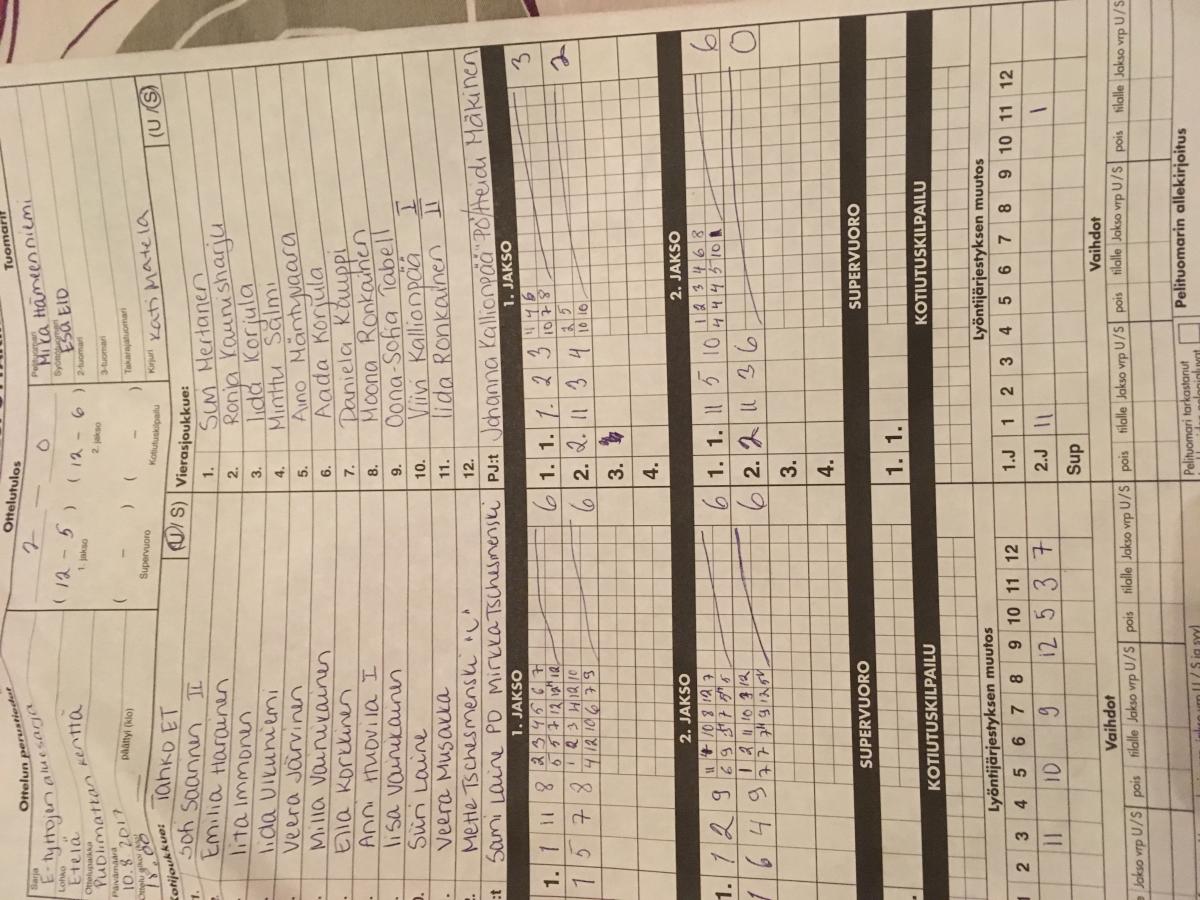 Ottelun perustiedot
Sarja
E-tyttöjen aluesarja
Lohko
Etelä
Ottelupaikka
Puolimatkan kenttä
Päivämäärä
10.8.2017
Ottelu alkoi (klo)
18.00
Päättyi (klo)
Ottelutulos
2 — 0
( 12 – 5 ) ( 12 – 6 )
1. jakso 2. jakso
( – ) ( – )
Supervuoro Kotiutuskilpailu
Tuomarit
Pelituomari
Mika Hämeenniemi
Syöttötuomari
Esa Eid
2-tuomari
3-tuomari
Takarajatuomari
Kirjuri Kati Matela
Kotijoukkue: Tahko ET (U/S)
1. Sofi Saarinen II
Emilia Harainen
Iita Immonen
Iida Ulkuniemi
Veera Järvinen
Milla Vainikainen
Ella Korkkinen
Anni Huovila I
Iisa Vainikainen
Siiri Laine
Veera Musakka
Mette Tschesmenski "L"
:t Sami Laine PO Mirkka Tschesmenski
Vierasjoukkue: (U/S)
1. SiM Mertanen
2. Ronja Kaunisharju
3. Iida Korjula
4. Minttu Salmi
5. Aino Mäntyvaara
6. Aada Korjula
7. Daniela Kauppi
8. Moona Ronkainen
9. Oona-Sofia Tabell
10. Viivi Kallionpää I
11. Iida Ronkainen II
12.
PJ:t Johanna Kallionpää "PO/Heidi Mäkinen
1. JAKSO
1. 1 11 8 2 3 4 5 6 7 6
5 5 7 12 12 12
1 5 7 8 1 2 3 11 12 10 6
4 12 10 6 7 9
1. JAKSO
1. 1. 1. 2 3 11 4 6 3
10 7 8
2. 2. 11 3 4 2 5 2
10 10
3.
4.
2. JAKSO
1. 1 2 9 6
1 6 4 9 6
2. JAKSO
1. 1. 11 5 10 1 2 3 4 6 8 6
4 4 4 5 10 1
2. 2 11 3 6 0
3.
4.
SUPERVUORO
SUPERVUORO
1. 1.
KOTIUTUSKILPAILU
KOTIUTUSKILPAILU
Lyöntijärjestyksen muutos
1 2 3 4 5 6 7 8 9 10 11 12
11 10 9 12 5 3 7
Lyöntijärjestyksen muutos
1.J 1 2 3 4 5 6 7 8 9 10 11 12
2.J 11 1
Sup
Vaihdot
Jakso vrp U/S pois tilalle Jakso vrp U/S pois tilalle Jakso vrp U/S
Vaihdot
pois tilalle Jakso vrp U/S pois tilalle Jakso vrp U/S pois tilalle Jakso vrp U/S
Pelituomari tarkastanut
Pelituomarin allekirjoitus